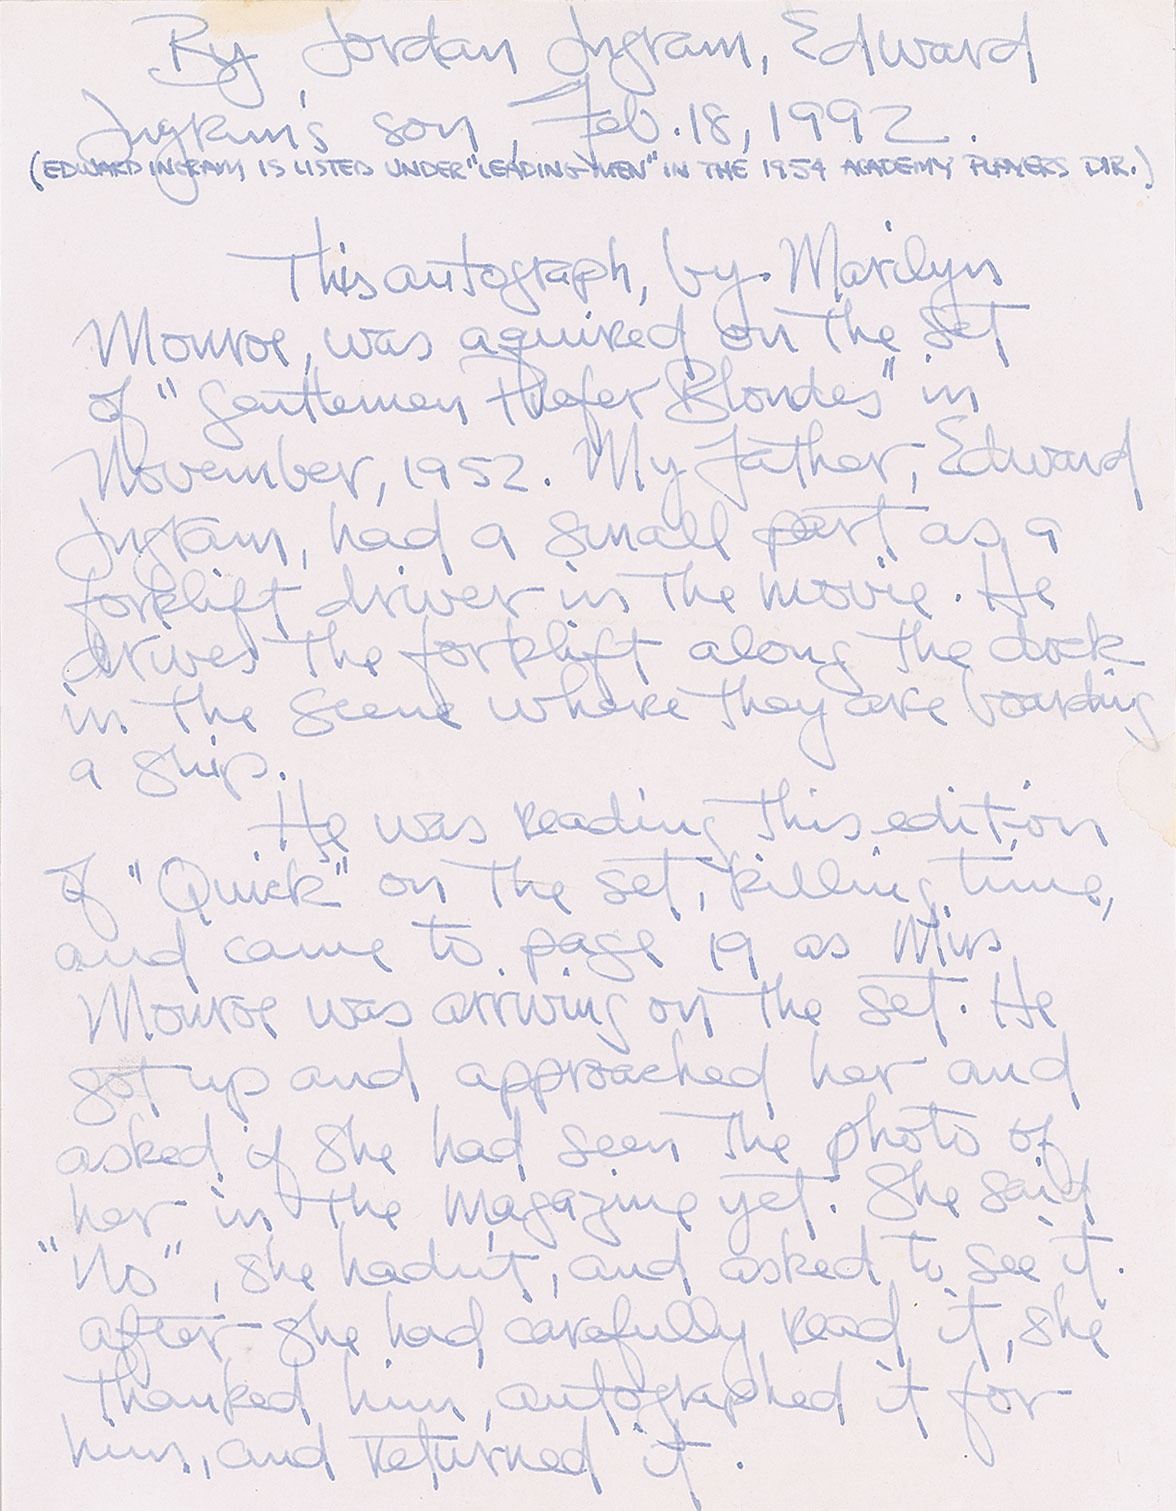 By Jordan Ingram, Edward
Ingram's son, Feb. 18, 1992.
(EDWARD INGRAM IS LISTED UNDER "LEADING MEN" IN THE 1954 ACADEMY PLAYERS DIR.)
This autograph, by Marilyn
Monroe, was aquired on the set
of "Gentlemen Prefer Blondes" in
November, 1952. My father, Edward
Ingram, had a small part as a
forklift driver in the movie. He
drives the forklift along the dock
in the scene where they are boarding
a ship.
He was reading this edition
of "Quick" on the set, killing time,
and came to page 19 as Miss
Monroe was arriving on the set. He
got up and approached her and
asked if she had seen the photo of
her in the magazine yet. She said
"No", she hadn't, and asked to see it.
after she had carefully read it, she
thanked him, autographed it for
him, and returned it.